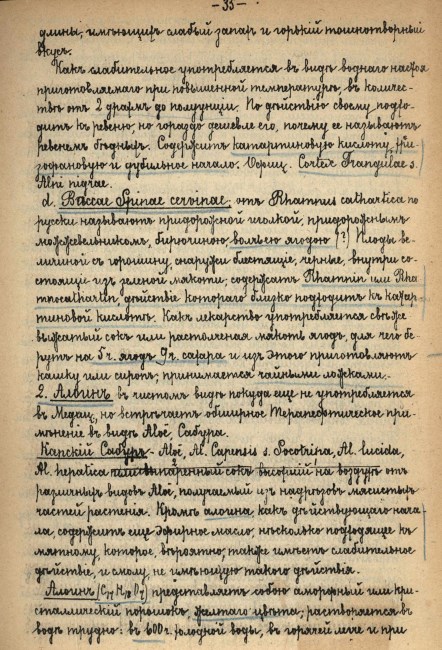 -35-
длины, имѣющихъ слабый запахъ и горькій тошнотворный
вкусъ.
Какъ слабительное употребляется въ видѣ воднаго настоя
приготовляемаго при повышенной температурѣ, въ количес-
твѣ отъ 2 драхмъ до полуунціи. По дѣйствію своему подхо-
дитъ къ ревеню, но гораздо дешевле его, почему ее называютъ
ревенемъ бѣдныхъ. Содержитъ катартиновую кислоту,
зофановую и дубильное начало. Cortex Frangulae s.
Alni nigrae.
d. Baccae Spinae cervinae, отъ Rhamnus cathartica по
русски называютъ придорожной иголкой, придорожнымъ
можжевельникомъ, бирючиною, волчьею ягодою (?) Плоды ве-
личиной съ горошину, снаружи блестящіе, черные, внутри со-
стоящіе изъ зеленой мякоти, содержатъ Rhamnin или Rha-
mnocathartin, дѣйствіе котораго близко подходитъ къ катар-
тиновой кислотѣ. Какъ лекарство употребляется свѣже
выжатый сокъ или растолченая мякоть ягодъ, для чего бе-
рутъ на 5 г. ягодъ 9 г. сахара и изъ этого приготовляютъ
кашку или сиропъ; принимается чайными ложками.
2. Алоинъ въ чистомъ видѣ покуда еще не употребляется
въ Медиц., но встрѣчаетъ обширное Терапевтическое при-
мѣненіе въ видѣ Aloë Сабура.
Капскій Сабуръ - Aloë, Al. Capensis s. Socotrina, Al. lucida,
Al. hepatica сокъ на воздухѣ отъ
различныхъ видовъ Aloë, получаемый изъ надрѣзовъ мясистыхъ
частей растенія. Кромѣ алоина, какъ дѣйствующаго нача-
ла, содержитъ еще эфирное масло, нѣсколько подходящее къ
мятному, которое, вѣроятно, также имѣетъ слабительное
дѣйствіе, и смолу, не имѣющую такого дѣйствія.
Алоинъ представляетъ собою аморфный или кри-
сталлическій порошокъ желтаго цвѣта; растворяется въ
водѣ трудно: въ 600 г. холодной воды, въ горячей легче и при